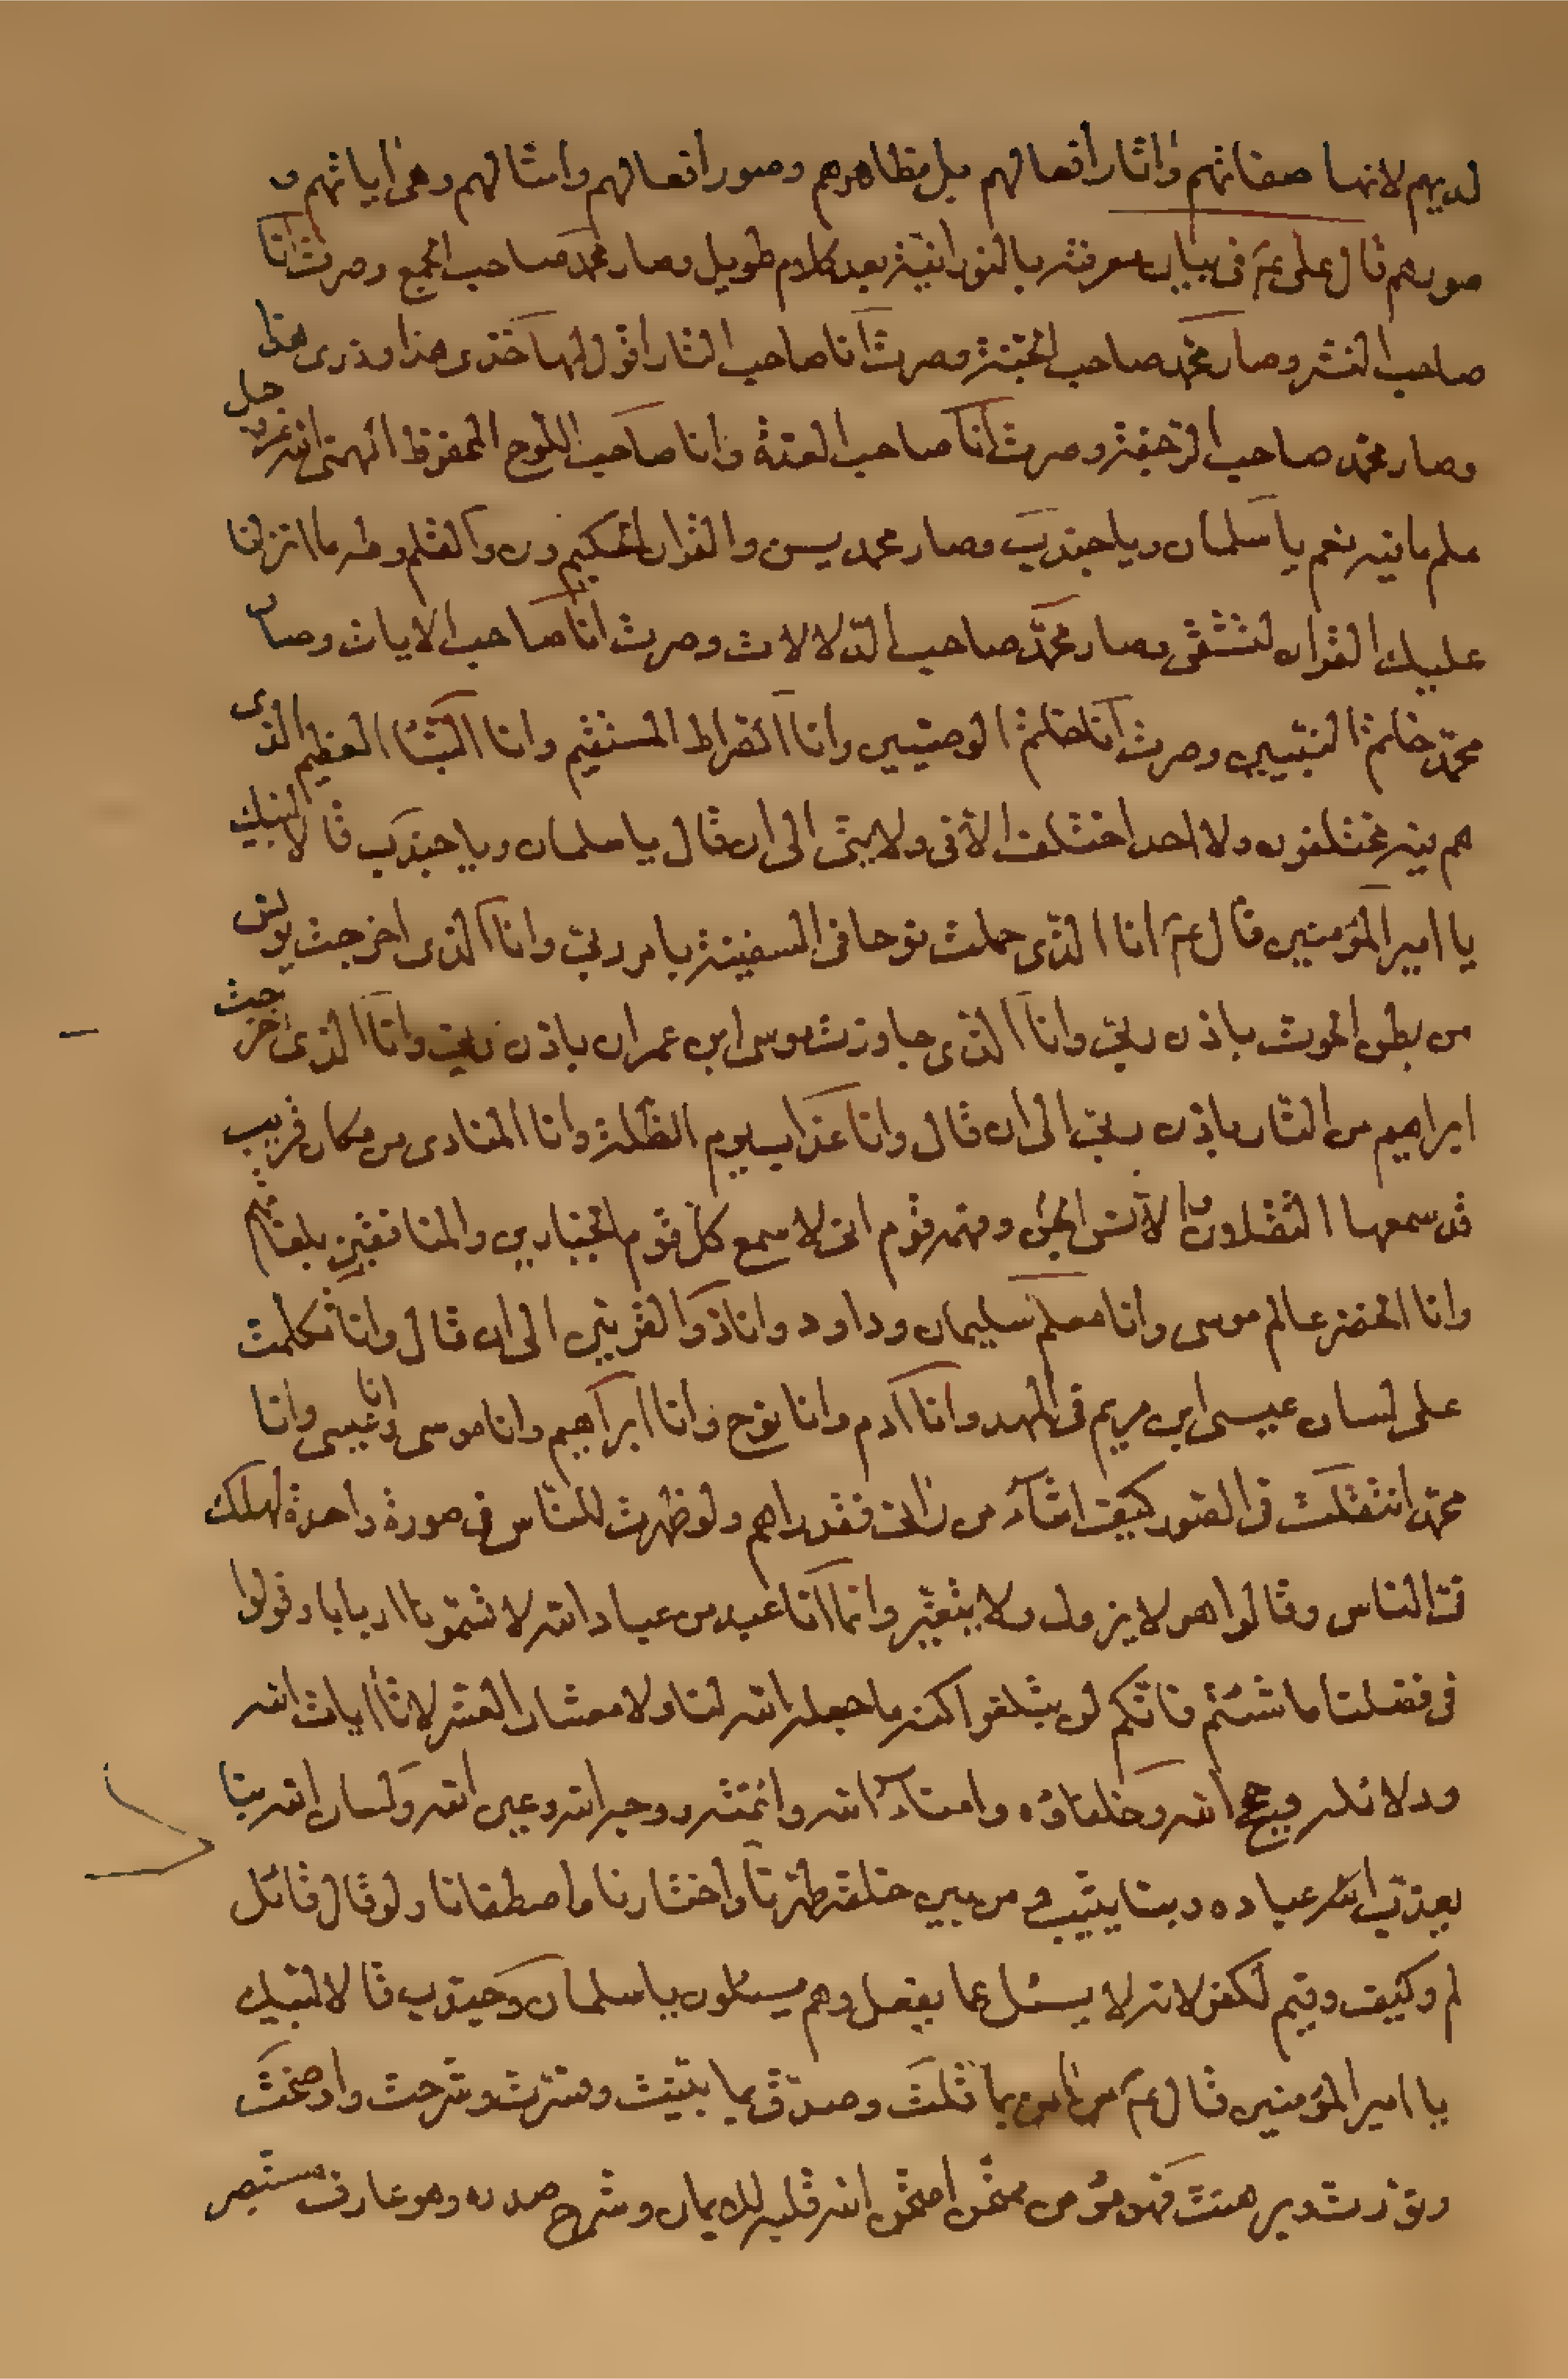 لديهم لانها صفاتهم واثار افعالهم بل مظاهرهم وصور افعالهم وامثالهم وهى اياتهم و
صورهم قال على عم فى بيان معرفته بالنورانية بعد كلام طويل وصار محمد صاحب الجمع وصرت انا
صاحب النشر وصار محمد صاحب الجنة وصرت انا صاحب النار اقول لها خذى هذا وذرى هذا
وصار محمد صاحب الرجفة وصرت انا صاحب العدة وانا صاحب اللوح المحفوظ الهمنى الله عز وجل
علم ما فيه نعم يا سلمان ويا جندب وصار محمد يسن والقران الحكيم ون والقلم وطه ما انزلنا
عليك القران لتشقى وصار محمد صاحب الدلالات وصرت انا صاحب الايات وصار
محمد خاتم النبيين وصرت انا خاتم الوصيين وانا الصراط المستقيم وانا النبأ العظيم الذى
هم فيه مختلفون ولا احد اختلف الا فى ولايتى الى ان قال يا سلمان ويا جندب قالا لبيك
يا امير المؤمنين قال عم انا الذى حملت نوحا فى السفينة بامر ربى وانا الذى اخرجت يونس
من بطن الحوت باذن ربى وانا الذى جاوزت موسى ابن عمران باذن ربى وانا الذى اخرجت
ابراهيم من النار باذن ربى الى ان قال وانا عذاب يوم الظلة وانا المنادى من مكان قريب
قد سمعها الثقلان الانس والجن وفهمه قوم انى لاسمع كل قوم الجبارين والمنافقين بلغاتهم
وانا الخضر عالم موسى وانا معلم سليمان وداود وانا ذو القرنين الى ان قال وانا تكلمت
على لسان عيسى ابن مريم فى المهد وانا ادم وانا نوح وانا ابراهيم وانا موسى وانا عيسى وانا
محمد انتقلت فى الصور كيف اشآء من رانى فقد راهم ولو ظهرت للناس فى صورة واحدة لهلك
فى الناس وقالوا هو لا يزول ولا يتغير وانما انا عبد من عباد الله لا تسمونا اربابا وقولوا
فى فضلنا ما شئتم فانكم لن تبلغوا كنه ما جعله الله لنا ولا معشار العشر لانا ايات الله
ودلائله وحجج الله وخلفاؤه وامناء الله وائمته ووجه الله وعين الله ولسان الله بنا
يعذب الله عباده وبنا يثيب ومن بين خلقه طهرنا واختارنا واصطفانا ولو قال قائل
لم وكيف وفيم لكفر لانه لا يسئل عما يفعل وهم يسئلون يا سلمان وجندب قالا لبيك
يا امير المؤمنين قال عم من امن بما قلت وصدق بما بينت وفسرت وشرحت واوضحت
ونورت وبرهنت فهو مؤمن ممتحن امتحن الله قلبه للايمان وشرح صدره وهو عارف مستبصر